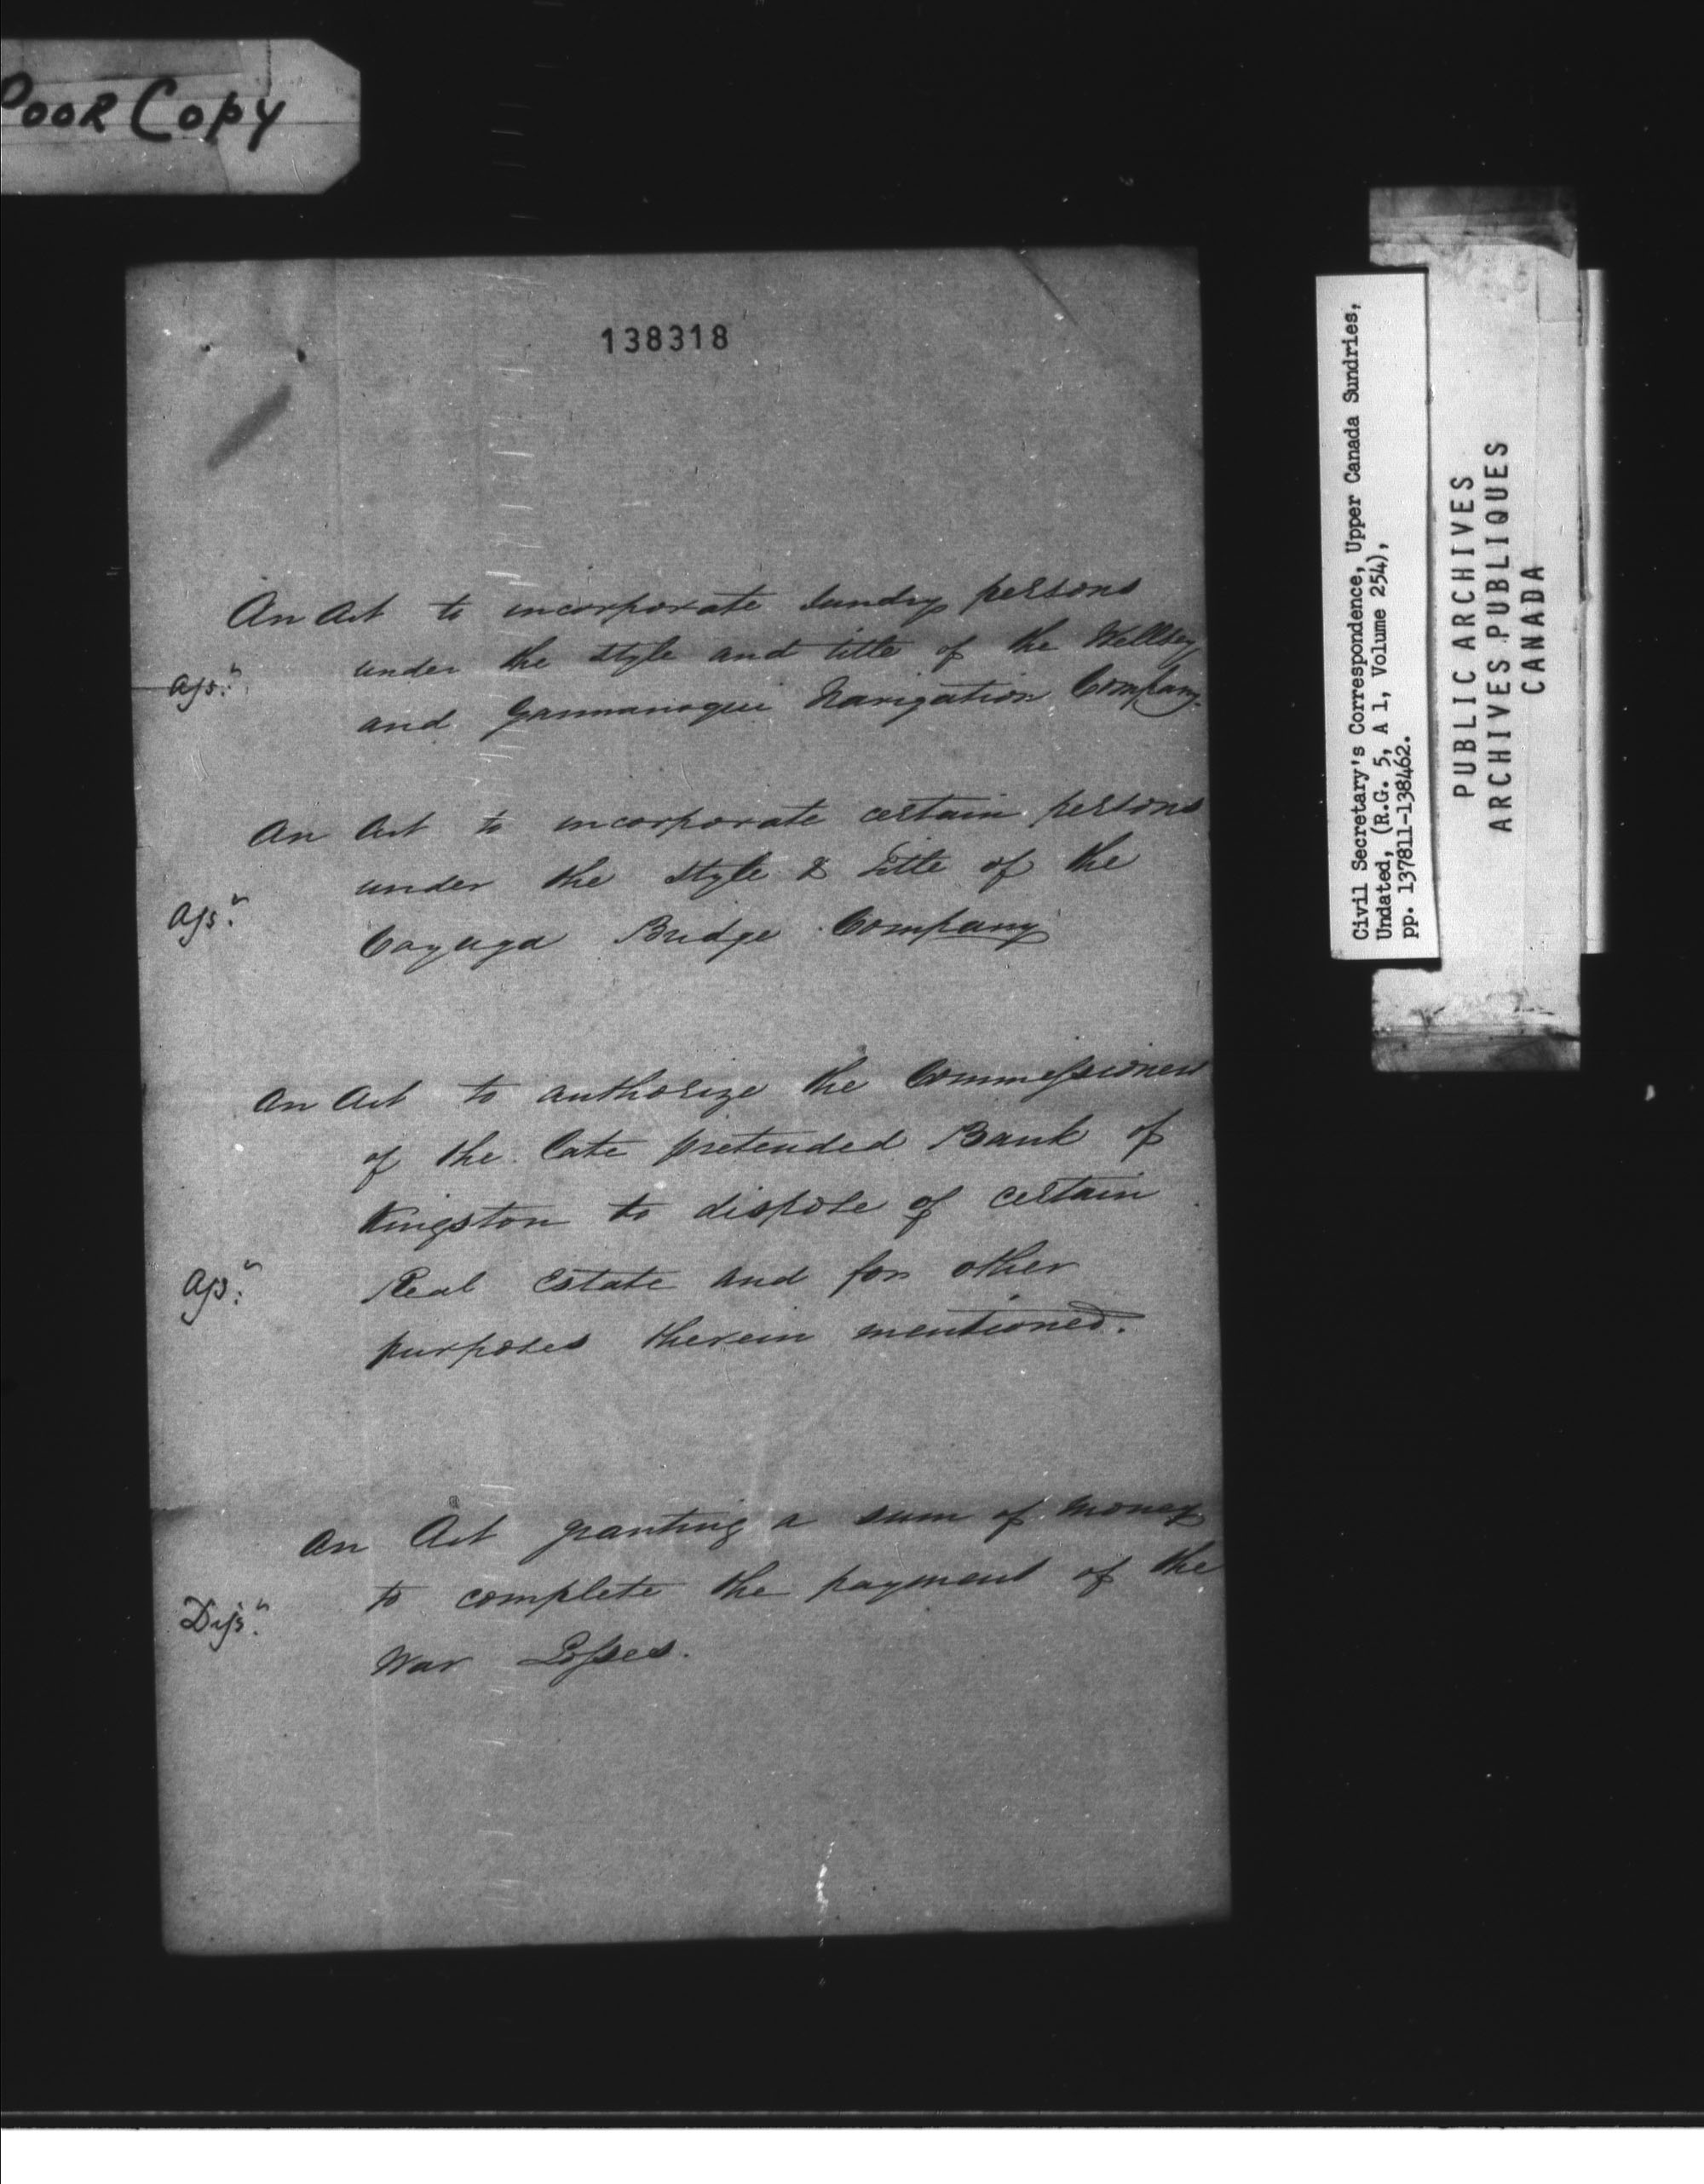 Poor Copy
138318
An Act to incorporate sundry persons
under the style and title of the
Ass:
and Gannanoqui Navigation Company.
An Act to incorporate certain persons
under the Style & Title of the
Ass:
Cayuga Bridge Company
An Act to authorize the Commissioners
of the late pretended Bank of
Kingston to dispose of certain
Ass:
Real Estate and for other
purposes therein mentioned.
An Act granting a sum of money
to complete the payment of the
Diss:
War Losses.
Civil Secretary's Correspondence, Upper Canada Sundries,
Undated, (R.G. 5, A 1, Volume 254),
pp. 137811-138462.
PUBLIC ARCHIVES
ARCHIVES PUBLIQUES
CANADA